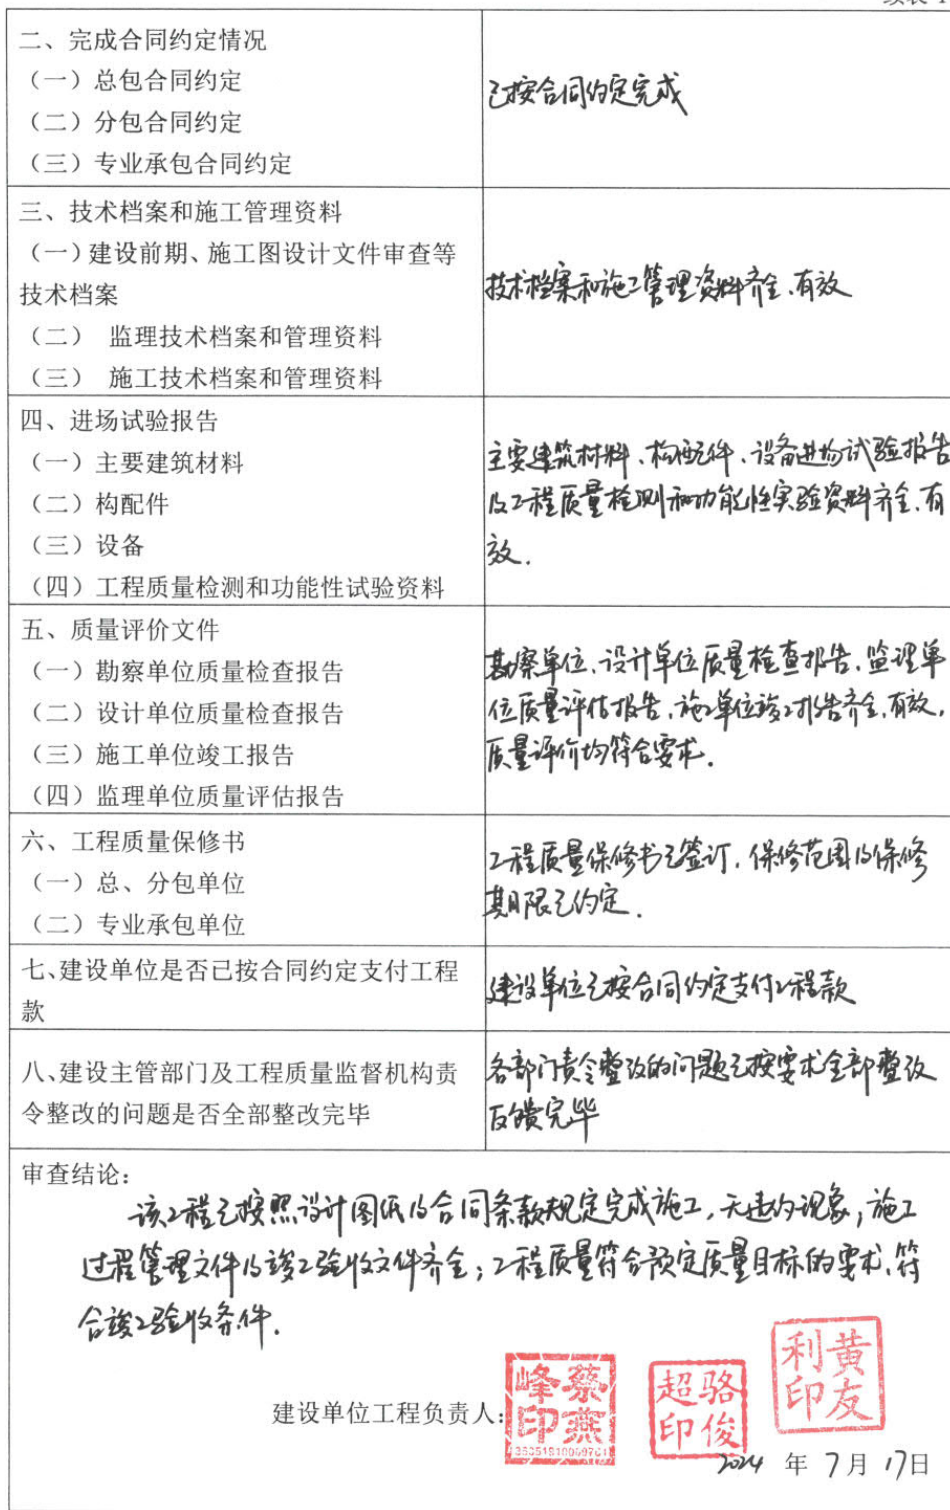 二、完成合同约定情况
（一）总包合同约定
（二）分包合同约定
（三）专业承包合同约定
已按合同约定完成
三、技术档案和施工管理资料
（一）建设前期、施工图设计文件审查等
技术档案
（二） 监理技术档案和管理资料
（三） 施工技术档案和管理资料
技术档案和施工管理资料齐全、有效
四、进场试验报告
（一）主要建筑材料
（二）构配件
（三）设备
（四）工程质量检测和功能性试验资料
主要建筑材料、构配件、设备进场试验报告
及工程质量检测和功能性实验资料齐全、有
效.
五、质量评价文件
（一）勘察单位质量检查报告
（二）设计单位质量检查报告
（三）施工单位竣工报告
（四）监理单位质量评估报告
勘察单位、设计单位质量检查报告、监理单
位质量评估报告、施工单位竣工报告齐全、有效，
质量评价均符合要求.
六、工程质量保修书
（一）总、分包单位
（二）专业承包单位
工程质量保修书已签订，保修范围及保修
期限已约定.
七、建设单位是否已按合同约定支付工程
款
建设单位已按合同约定支付工程款
八、建设主管部门及工程质量监督机构责
令整改的问题是否全部整改完毕
各部门责令整改的问题已按要求全部整改
反馈完毕
审查结论：
该工程已按照设计图纸及合同条款规定完成施工，无违约现象，施工
过程管理文件及竣工验收文件齐全；工程质量符合预定质量目标的要求、符
合竣工验收条件.
建设单位工程负责人：
蔡燕峰印
骆俊超印
黄友利印
2024 年 7 月 17 日